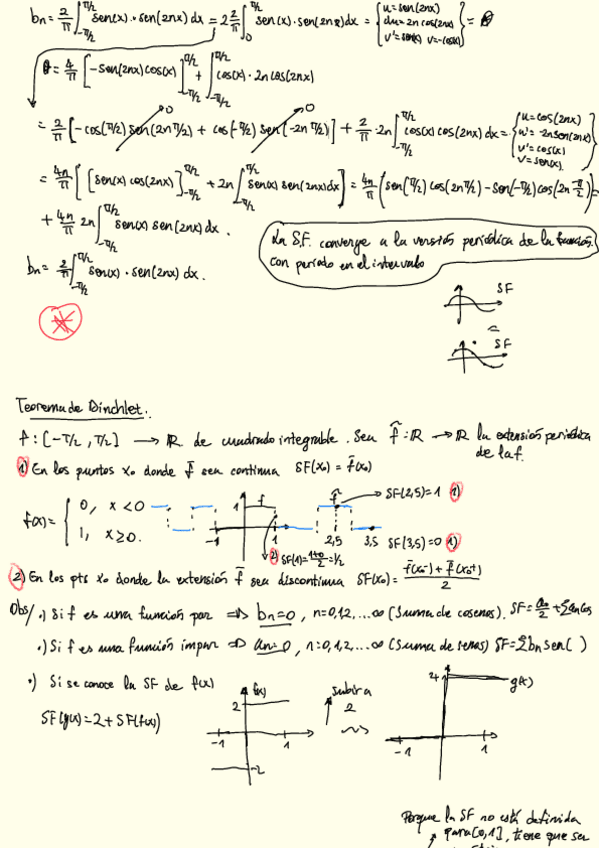 bn = 2/π ∫_{-π/2}^{π/2} sen(x)·sen(2nx) dx = 2 2/π ∫_0^{π/2} sen(x)·sen(2nx)dx = { u=sen(2nx) du=2n cos(2nx) v'=sen(x) v=-cos(x) } =
= 4/π [-sen(2nx)cos(x)]_{-π/2}^{π/2} + ∫_{-π/2}^{π/2} cos(x)·2n cos(2nx)
= 2/π [-cos(π/2)sen(2nπ/2) + cos(-π/2) sen(-2nπ/2)] + 2/π ·2n ∫_{-π/2}^{π/2} cos(x)cos(2nx)dx = { u=cos(2nx) u'=-2nsen(2nx) v'=cos(x) v=sen(x) }
= 4n/π [ [sen(x)cos(2nx)]_{-π/2}^{π/2} + 2n ∫_{-π/2}^{π/2} sen(x) sen(2nx)dx ] = 4n/π (sen(π/2)cos(2nπ/2) - sen(-π/2)cos(2n -π/2)) =
+ 4n/π 2n ∫_{-π/2}^{π/2} sen(x) sen(2nx) dx.
La S.F. converge a la versión periódica de la función.
con periodo en el intervalo
bn = 2/π ∫_{-π/2}^{π/2} sen(x)·sen(2nx) dx.
SF
=
SF
Teorema de Dirichlet.
f: [-T/2, T/2] → ℝ de cuadrado integrable. Sea f̃: ℝ → ℝ la extensión periódica
de la f.
1) En los puntos x₀ donde f̃ sea continua SF(x₀) = f̃(x₀)
f(x) = { 0, x<0
1, x≥0.
1 f -1 1
f̃ 2,5 3,5
SF(2,5)=1 1)
SF(3,5)=0 1)
2) SF(1) = 1+0/2 = 1/2
2) En los pts x₀ donde la extensión f̃ sea discontinua SF(x₀) = f̃(x₀⁻) + f̃(x₀⁺)/2
Obs/ ·) Si f es una función par ⇒ bn=0, n=0,1,2,...∞ (Suma de cosenos). SF = a₀/2 + Σ an cos
·) Si f es una función impar ⇒ an=0, n=0,1,2,...∞ (Suma de senos) SF=Σbn sen( )
·) Si se conoce la SF de f(x)
SF(g(x)) = 2 + SF(f(x))
f(x) 2 -1 1 -2
subir a
2
4 g(x) -1 1
Porque la SF no está definida
para [0,1], tiene que ser